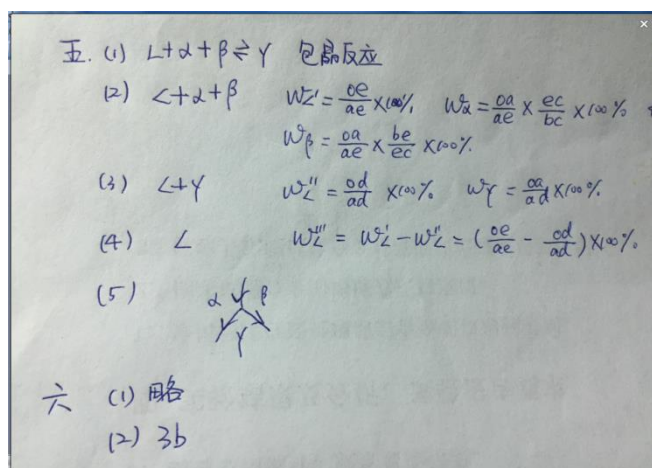 五. (1) L+α+β⇌γ 包晶反应
(2) L+α+β W_L' = oe/ae ×100%, W_α = oa/ae × ec/bc ×100%
W_β = oa/ae × be/ec ×100%.
(3) L+γ W_L'' = od/ad ×100% W_γ = oa/ad ×100%.
(4) L W_L''' = W_L' - W_L'' = (oe/ae - od/ad)×100%.
(5) α β
γ
六 (1) 略
(2) 3b